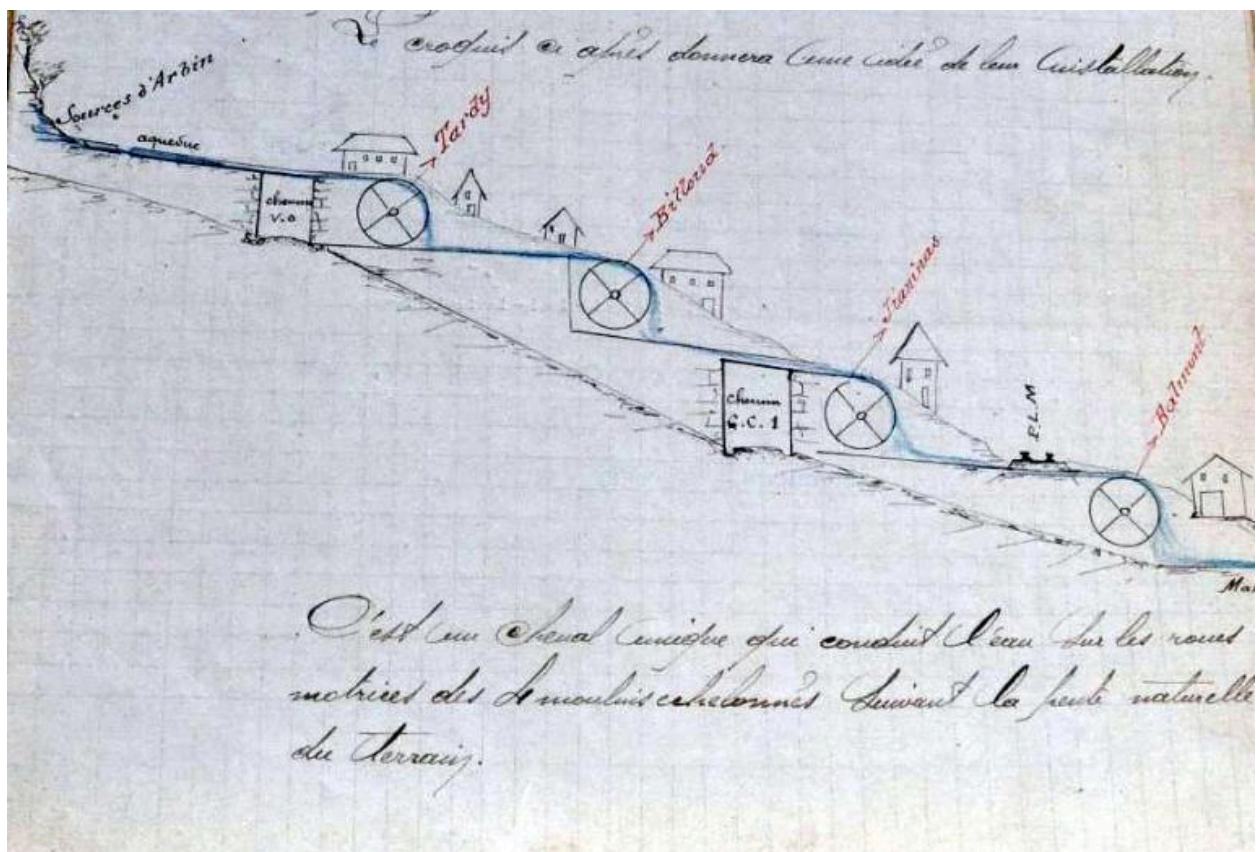 Le croquis ci après donnera une idée de leur installation.
Sources d'Arbin
aqueduc
Tardy
chemin
V.O
chemin
G.C.1
P.L.M
C'est un chenal unique qui conduit l'eau sur les roues
motrices des 4 moulins echelonnés suivant la pente naturelle
du terrain.